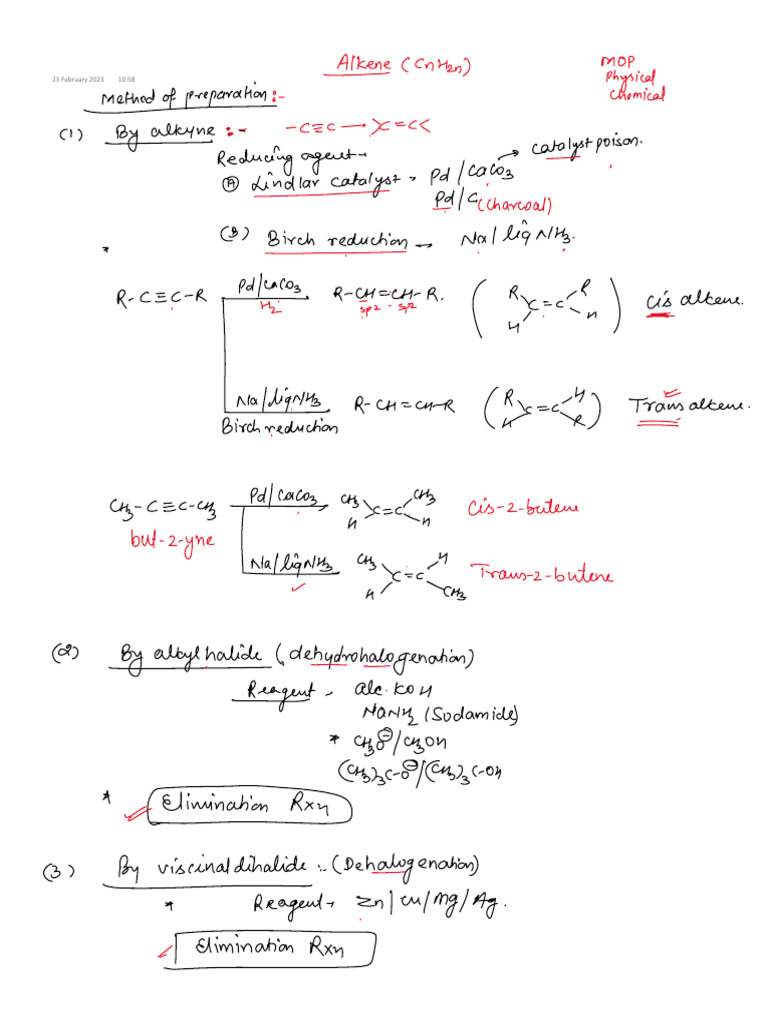 Alkene (CnH2n)
MOP
Physical
Chemical
23 February 2023 10:58
Method of preparation:-
(1) By alkyne :- -C≡C-→>C=C<
Reducing agent→
(A) Lindlar catalyst → Pd/CaCO3 → catalyst poison.
Pd/C (charcoal)
(B) Birch reduction → Na/liq NH3.
*
R-C≡C-R Pd/CaCO3 H2 R-CH=CH-R. sp2 sp2 (R H C=C R H) cis alkene.
Na/liq NH3 Birch reduction R-CH=CH-R (R H C=C H R) Trans alkene.
CH3-C≡C-CH3 Pd/CaCO3 CH3 H C=C CH3 H cis-2-butene
but-2-yne
Na/liq NH3 CH3 H C=C H CH3 Trans-2-butene
(2) By alkylhalide (dehydrohalogenation)
Reagent - alc. KOH
NaNH2 (Sodamide)
* CH3O⊖/CH3OH
(CH3)3C-O⊖/(CH3)3C-OH
* Elimination Rxn
(3) By viscinaldihalide :- (Dehalogenation)
* Reagent → Zn/Cu/Mg/Ag.
Elimination Rxn